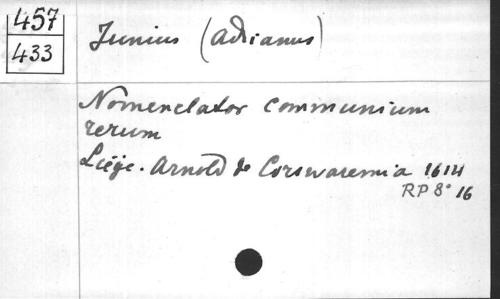 457
433
Junius (Adrianus)
Nomenclator communium
rerum
Liége. Arnold de Corswaremia 1614
RP 8° 16